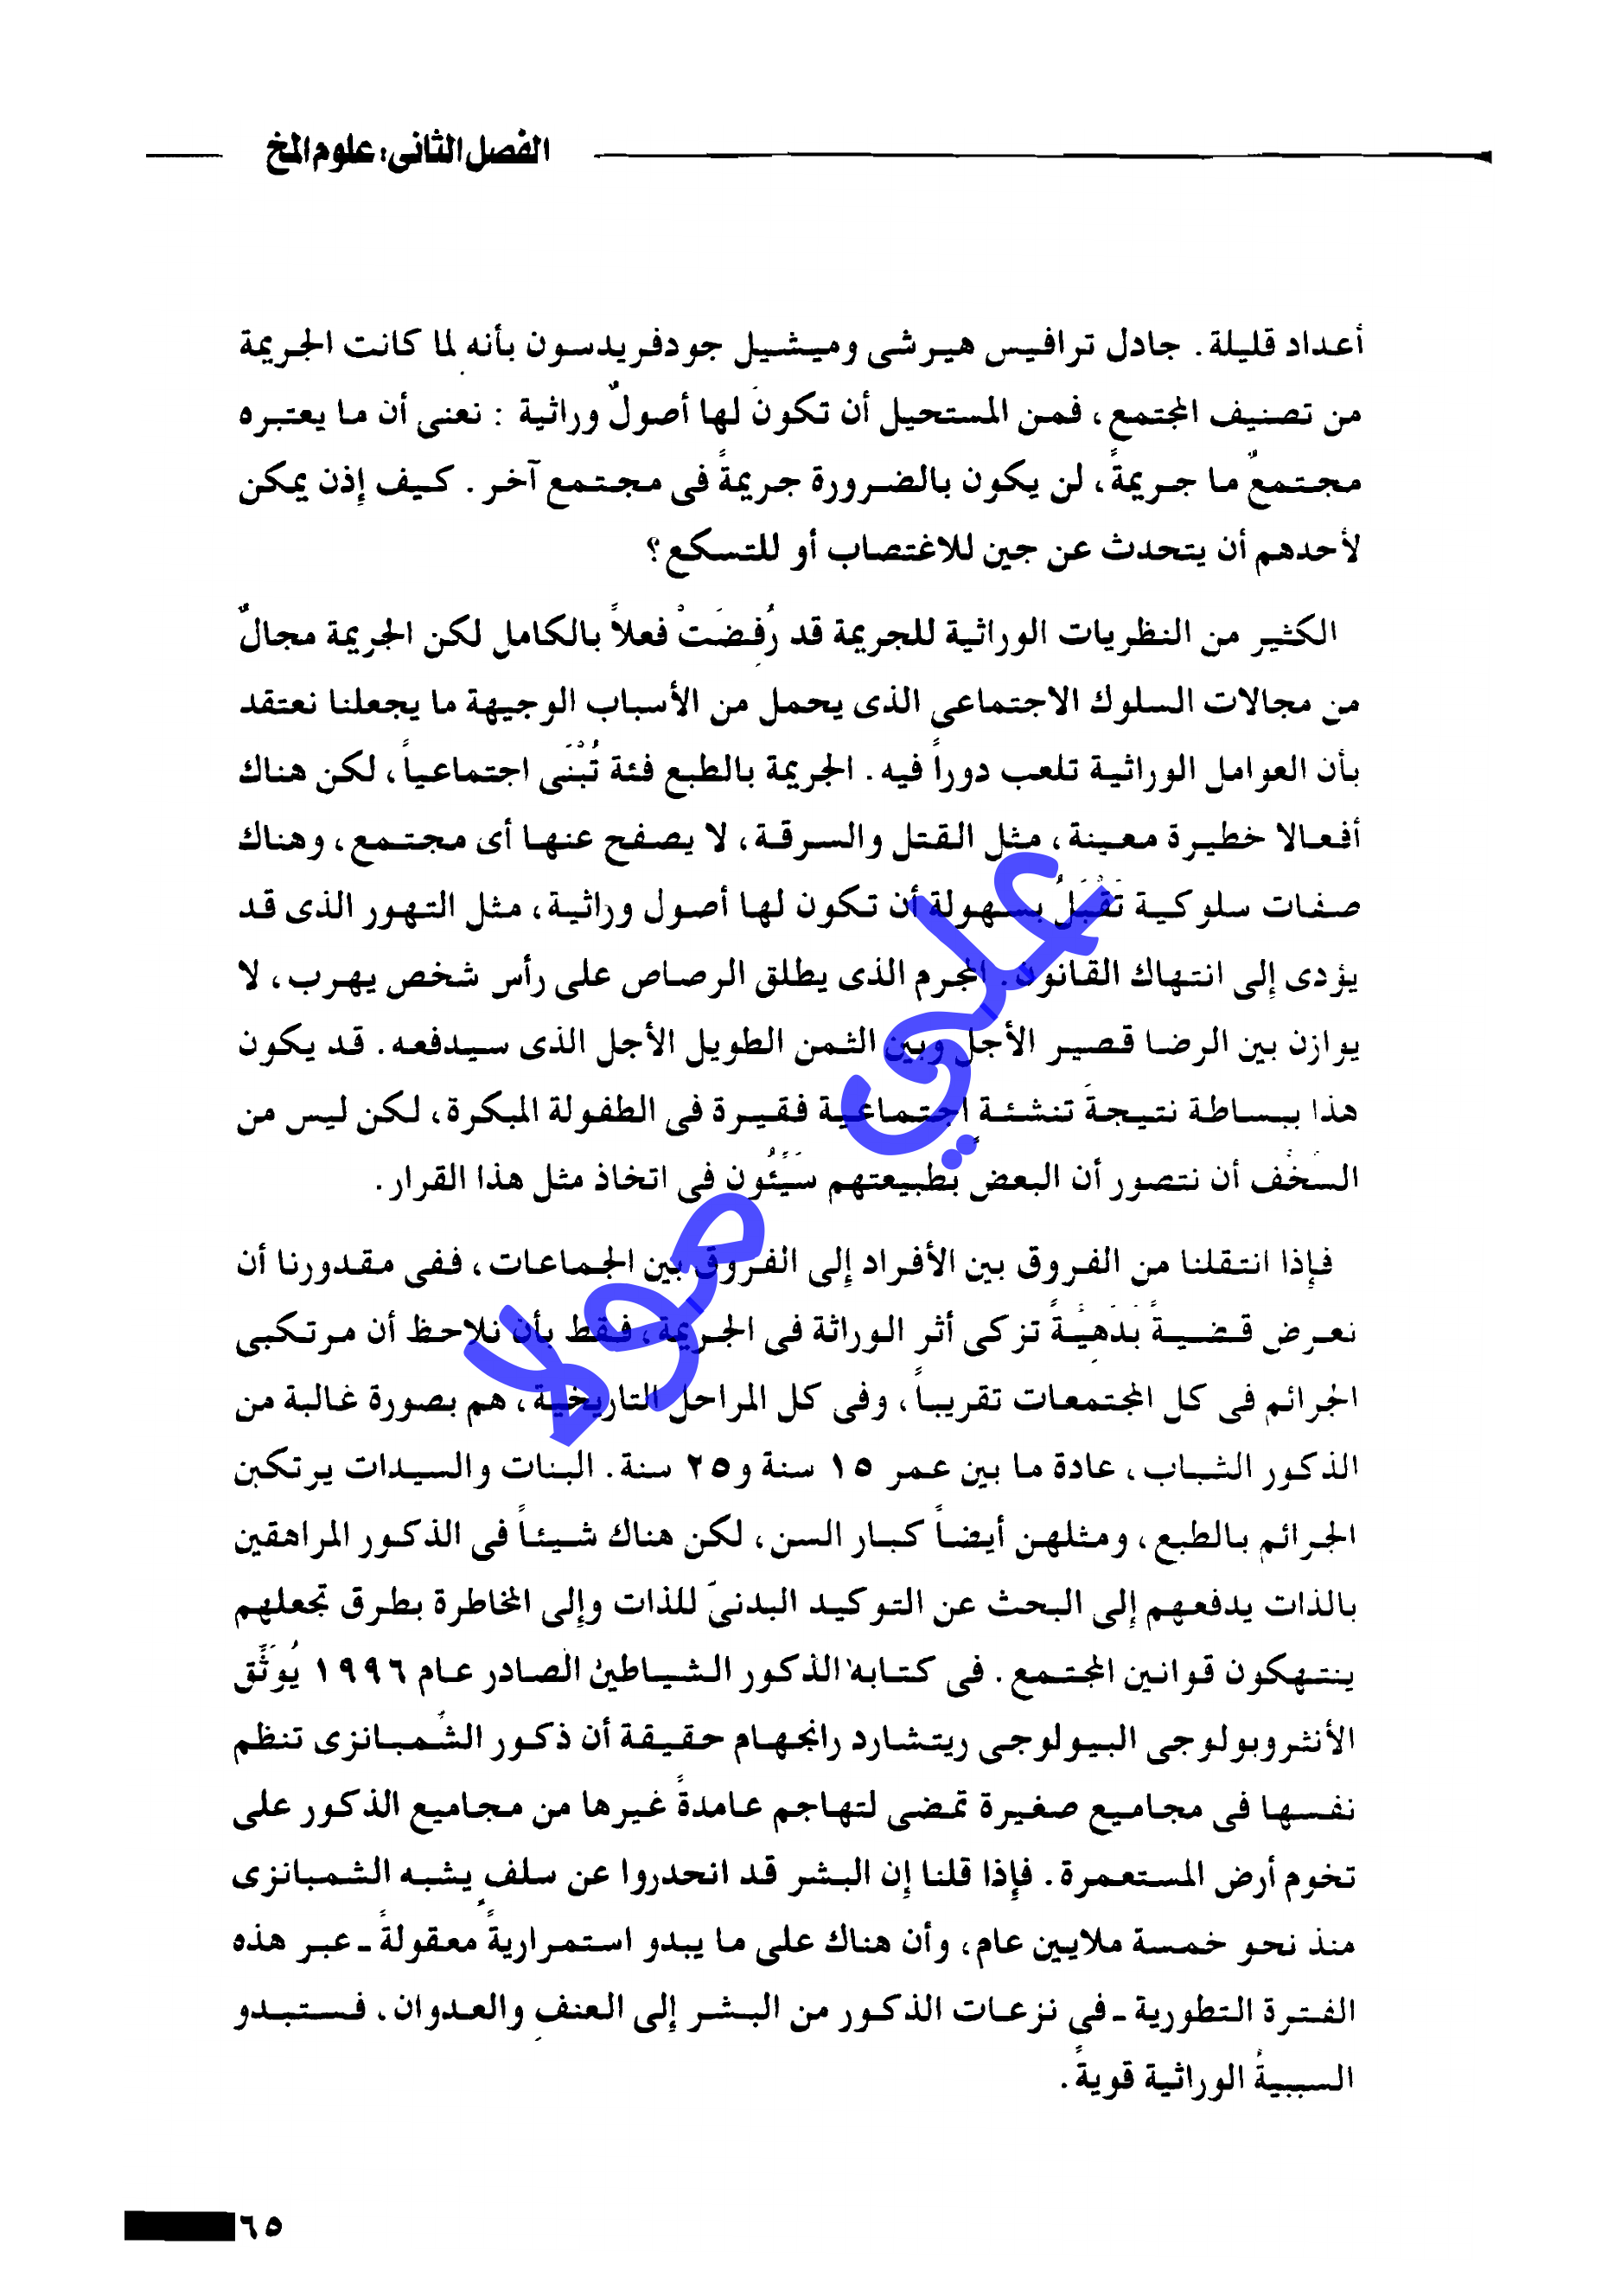 الفصل الثانى: علوم المخ
أعداد قليلة. جادل ترافيس هيرشى وميشيل جودفريدسون بأنه لما كانت الجريمة
من تصنيف المجتمع، فمن المستحيل أن تكونَ لها أصولٌ وراثية : نعنى أن ما يعتبره
مجتمعٌ ما جريمةً، لن يكون بالضرورة جريمةً فى مجتمع آخر. كيف إذن يمكن
لأحدهم أن يتحدث عن جين للاغتصاب أو للتسكع؟
الكثير من النظريات الوراثية للجريمة قد رُفِضَتْ فعلاً بالكامل لكن الجريمة مجالٌ
من مجالات السلوك الاجتماعى الذى يحمل من الأسباب الوجيهة ما يجعلنا نعتقد
بأن العوامل الوراثية تلعب دوراً فيه. الجريمة بالطبع فئة تُبْنَى اجتماعياً، لكن هناك
أفعالا خطيرة معينة، مثل القتل والسرقة، لا يصفح عنها أى مجتمع، وهناك
صفات سلوكية تَقْبَلُ بسهولة أن تكون لها أصول وراثية، مثل التهور الذى قد
يؤدى إلى انتهاك القانون. المجرم الذى يطلق الرصاص على رأس شخص يهرب، لا
يوازن بين الرضا قصير الأجل وبين الثمن الطويل الأجل الذى سيدفعه. قد يكون
هذا ببساطة نتيجةَ تنشئةٍ اجتماعية فقيرة فى الطفولة المبكرة، لكن ليس من
السُخْف أن نتصور أن البعض بطبيعتهم سَيِّئُون فى اتخاذ مثل هذا القرار.
فإذا انتقلنا من الفروق بين الأفراد إلى الفروق بين الجماعات، ففى مقدورنا أن
نعرض قضيةً بَدَهِيَّةً تزكى أثر الوراثة فى الجريمة، فقط بأن نلاحظ أن مرتكبى
الجرائم فى كل المجتمعات تقريباً، وفى كل المراحل التاريخية، هم بصورة غالبة من
الذكور الشباب، عادة ما بين عمر ١٥ سنة و٢٥ سنة. البنات والسيدات يرتكبن
الجرائم بالطبع، ومثلهن أيضاً كبار السن، لكن هناك شيئاً فى الذكور المراهقين
بالذات يدفعهم إلى البحث عن التوكيد البدنىّ للذات وإلى المخاطرة بطرق تجعلهم
ينتهكون قوانين المجتمع. فى كتابه "الذكور الشياطين" الصادر عام ١٩٩٦ يُوَثِّق
الأنثروبولوجى البيولوجى ريتشارد رانجهام حقيقة أن ذكور الشُمبانزى تنظم
نفسها فى مجاميع صغيرة تمضى لتهاجم عامدةً غيرها من مجاميع الذكور على
تخوم أرض المستعمرة. فإذا قلنا إن البشر قد انحدروا عن سلفٍ يشبه الشمبانزى
منذ نحو خمسة ملايين عام، وأن هناك على ما يبدو استمراريةً معقولةً ـ عبر هذه
الفترة التطورية ـ فى نزعات الذكور من البشر إلى العنفِ والعدوان، فستبدو
السببيةُ الوراثية قويةً.
٦٥
علي مولا